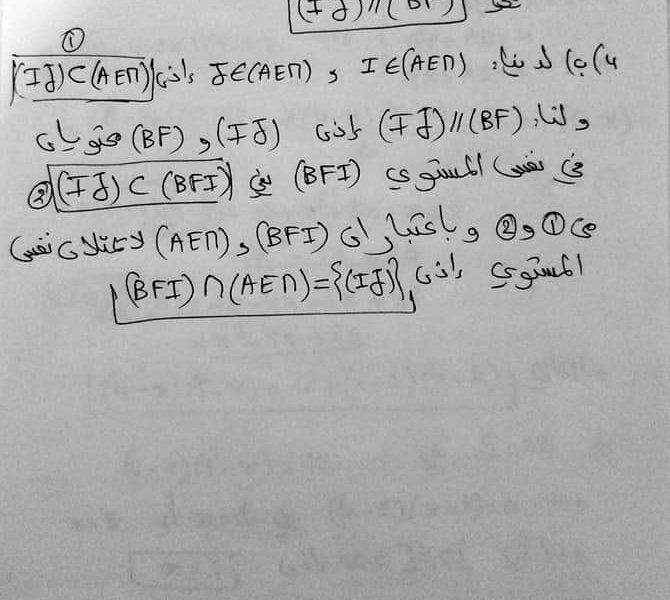 (IJ)//(BF) يعني
①
4)ب) لدينا: I∈(AEM) و J∈(AEM) إذن (IJ)⊂(AEM)
ولنا: (IJ)//(BF) إذن (IJ) و (BF) محتويان
في نفس المستوى (BFI) يعني (IJ)⊂(BFI) ②
من ① و ② وباعتبار أن (BFI) و (AEM) لا يمثلان نفس
المستوي إذن (BFI)∩(AEM)={(IJ)}